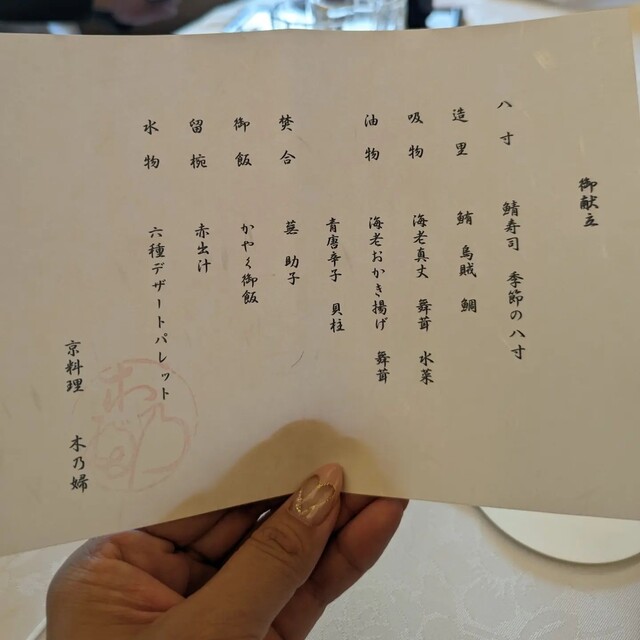 御献立
八寸 鯖寿司 季節の八寸
造里 鮪 烏賊 鯛
吸物 海老真丈 舞茸 水菜
油物 海老おかき揚げ 舞茸
青唐辛子 貝柱
焚合 茄 助子
御飯 かやく御飯
留椀 赤出汁
水物 六種デザートパレット
京料理 木乃婦